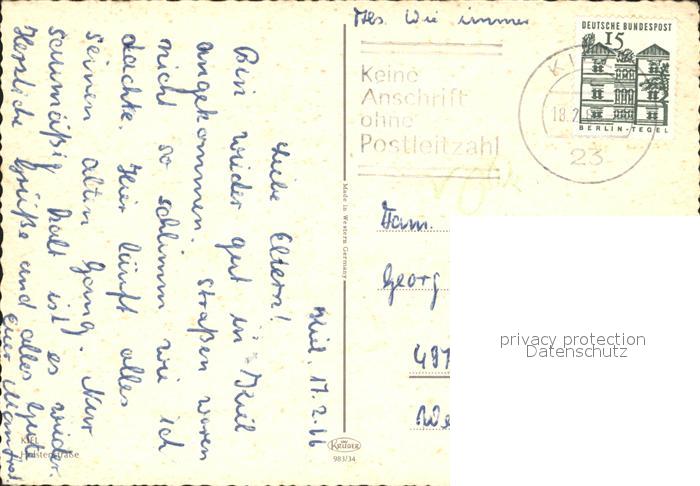 Kiel, 17.2.66
Liebe Eltern!
Bin wieder gut in Kiel
angekommen. Straßen waren
nicht so schlimm wie ich
dachte. Hier läuft alles
seinen alten Gang. Nur
saumäßig kalt ist es wieder.
Herzliche Grüße und alles Gute
euer
KIEL
Holstenstraße
Made in Western Germany
KRÜGER
983/34
Abs. Wie immer
Keine
Anschrift
ohne
Postleitzahl
KI
18.2
23
DEUTSCHE BUNDESPOST
15
BERLIN-TEGEL
Fam.
Georg
497
We
privacy protection
Datenschutz